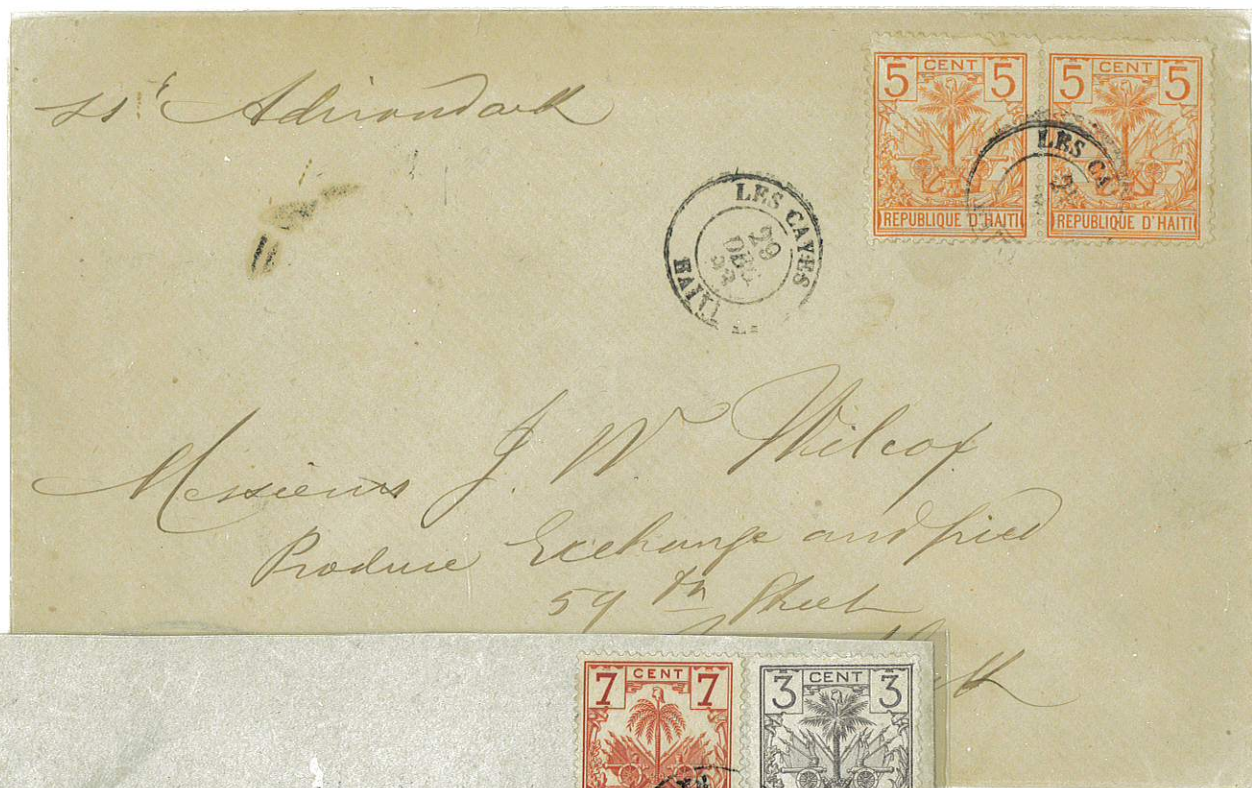 ss^r Adirondack
5 CENT 5
5 CENT 5
REPUBLIQUE D'HAITI
REPUBLIQUE D'HAITI
LES CAYES
LES CAYES
29
HAITI
Messieurs J. W Wilcox
Produce Exchange and pied
59 th Street
7 CENT 7
3 CENT 3